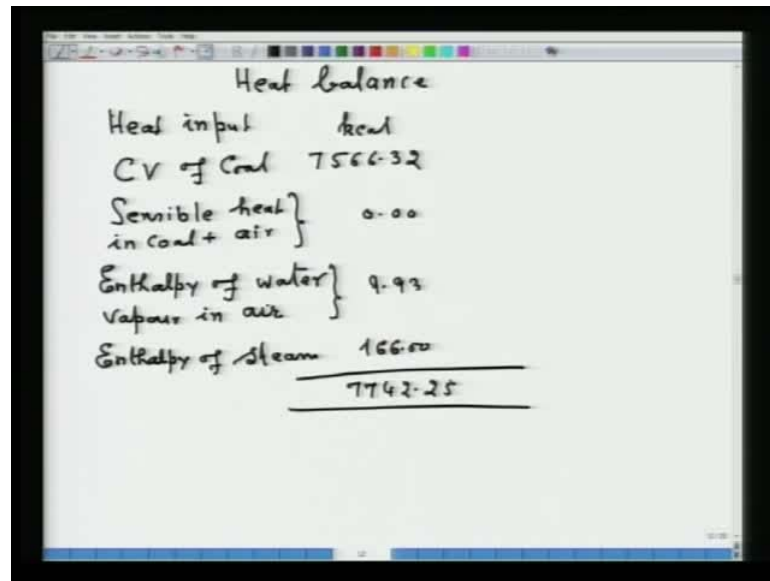 Heat balance
Heat input kcal
CV of Coal 7566.32
Sensible heat } 0.00
in coal + air
Enthalpy of water } 9.93
vapour in air
Enthalpy of steam 166.00
7742.25